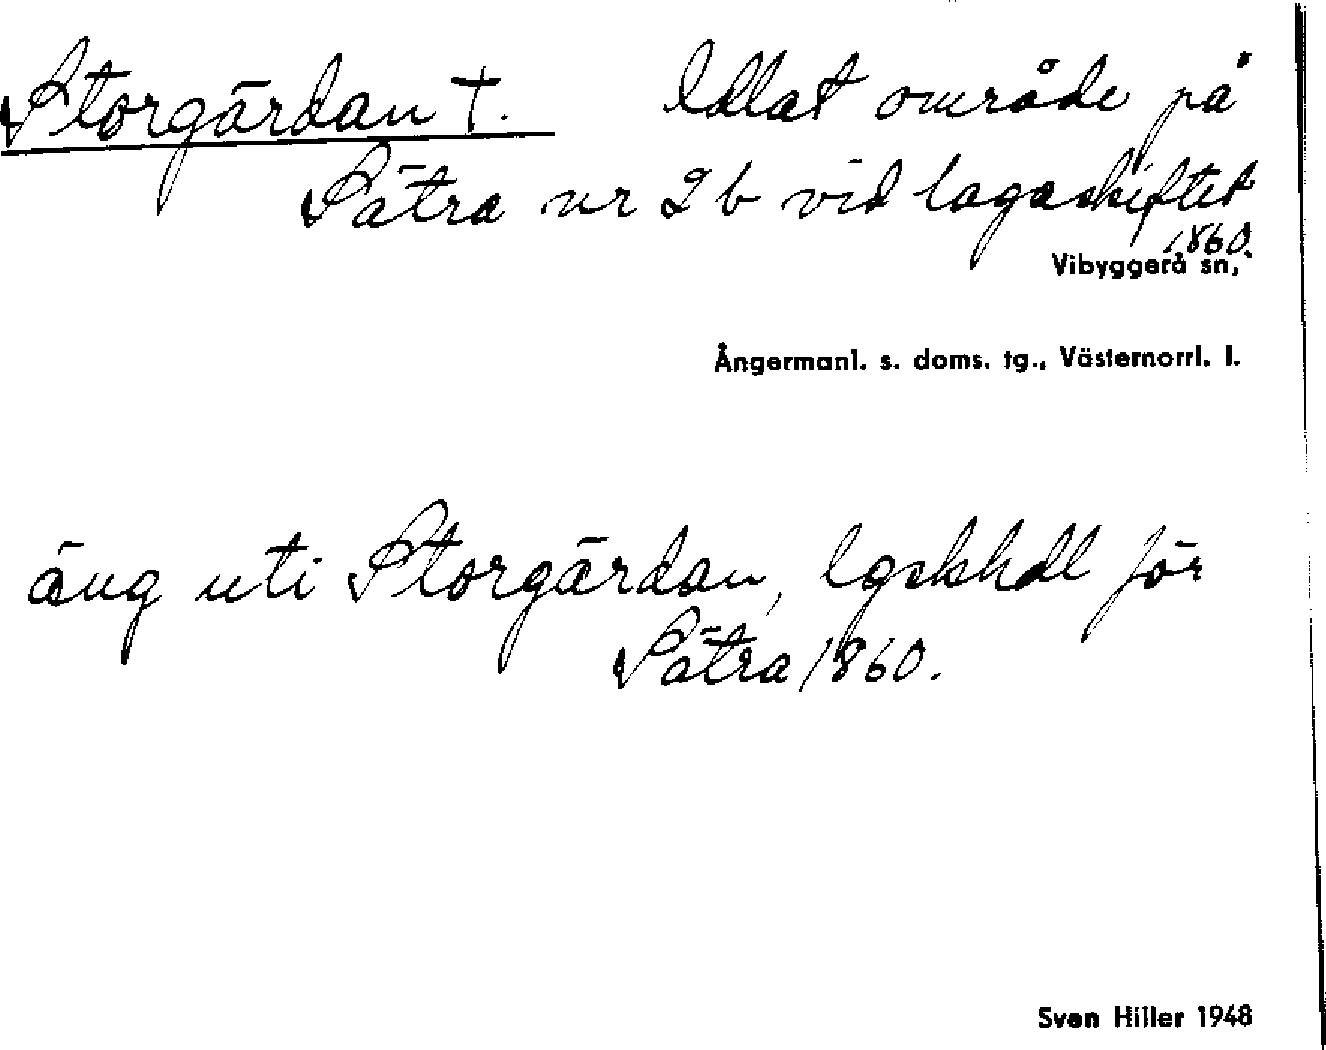 Storgärdan †. Odlat område på
Sätra nr 2 b vid lagaskiftet
1860.
Vibyggerå sn,
Ångermanl. s. doms. tg., Västernorrl. l.
äng uti Storgärdan, lgskhdl för
Sätra 1860.
Sven Hiller 1948